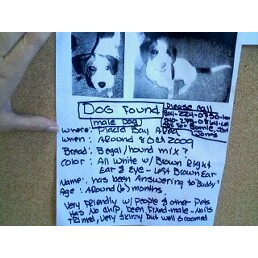 Dog Found
(male dog)
Please call
where: Placid Bay Area
when: Around 8 Oct 2009
Breed: Begal/hound mix?
Color: All White w/ Brown Right
Ear & Eye - Left Brown Ear
Name: has been Answering to Buddy
Age: Around (6) months.
Very Friendly w/ People & other Pets
Has No chip, been fixed-male - Nails
Trimed, Very Skinny but well Groomed